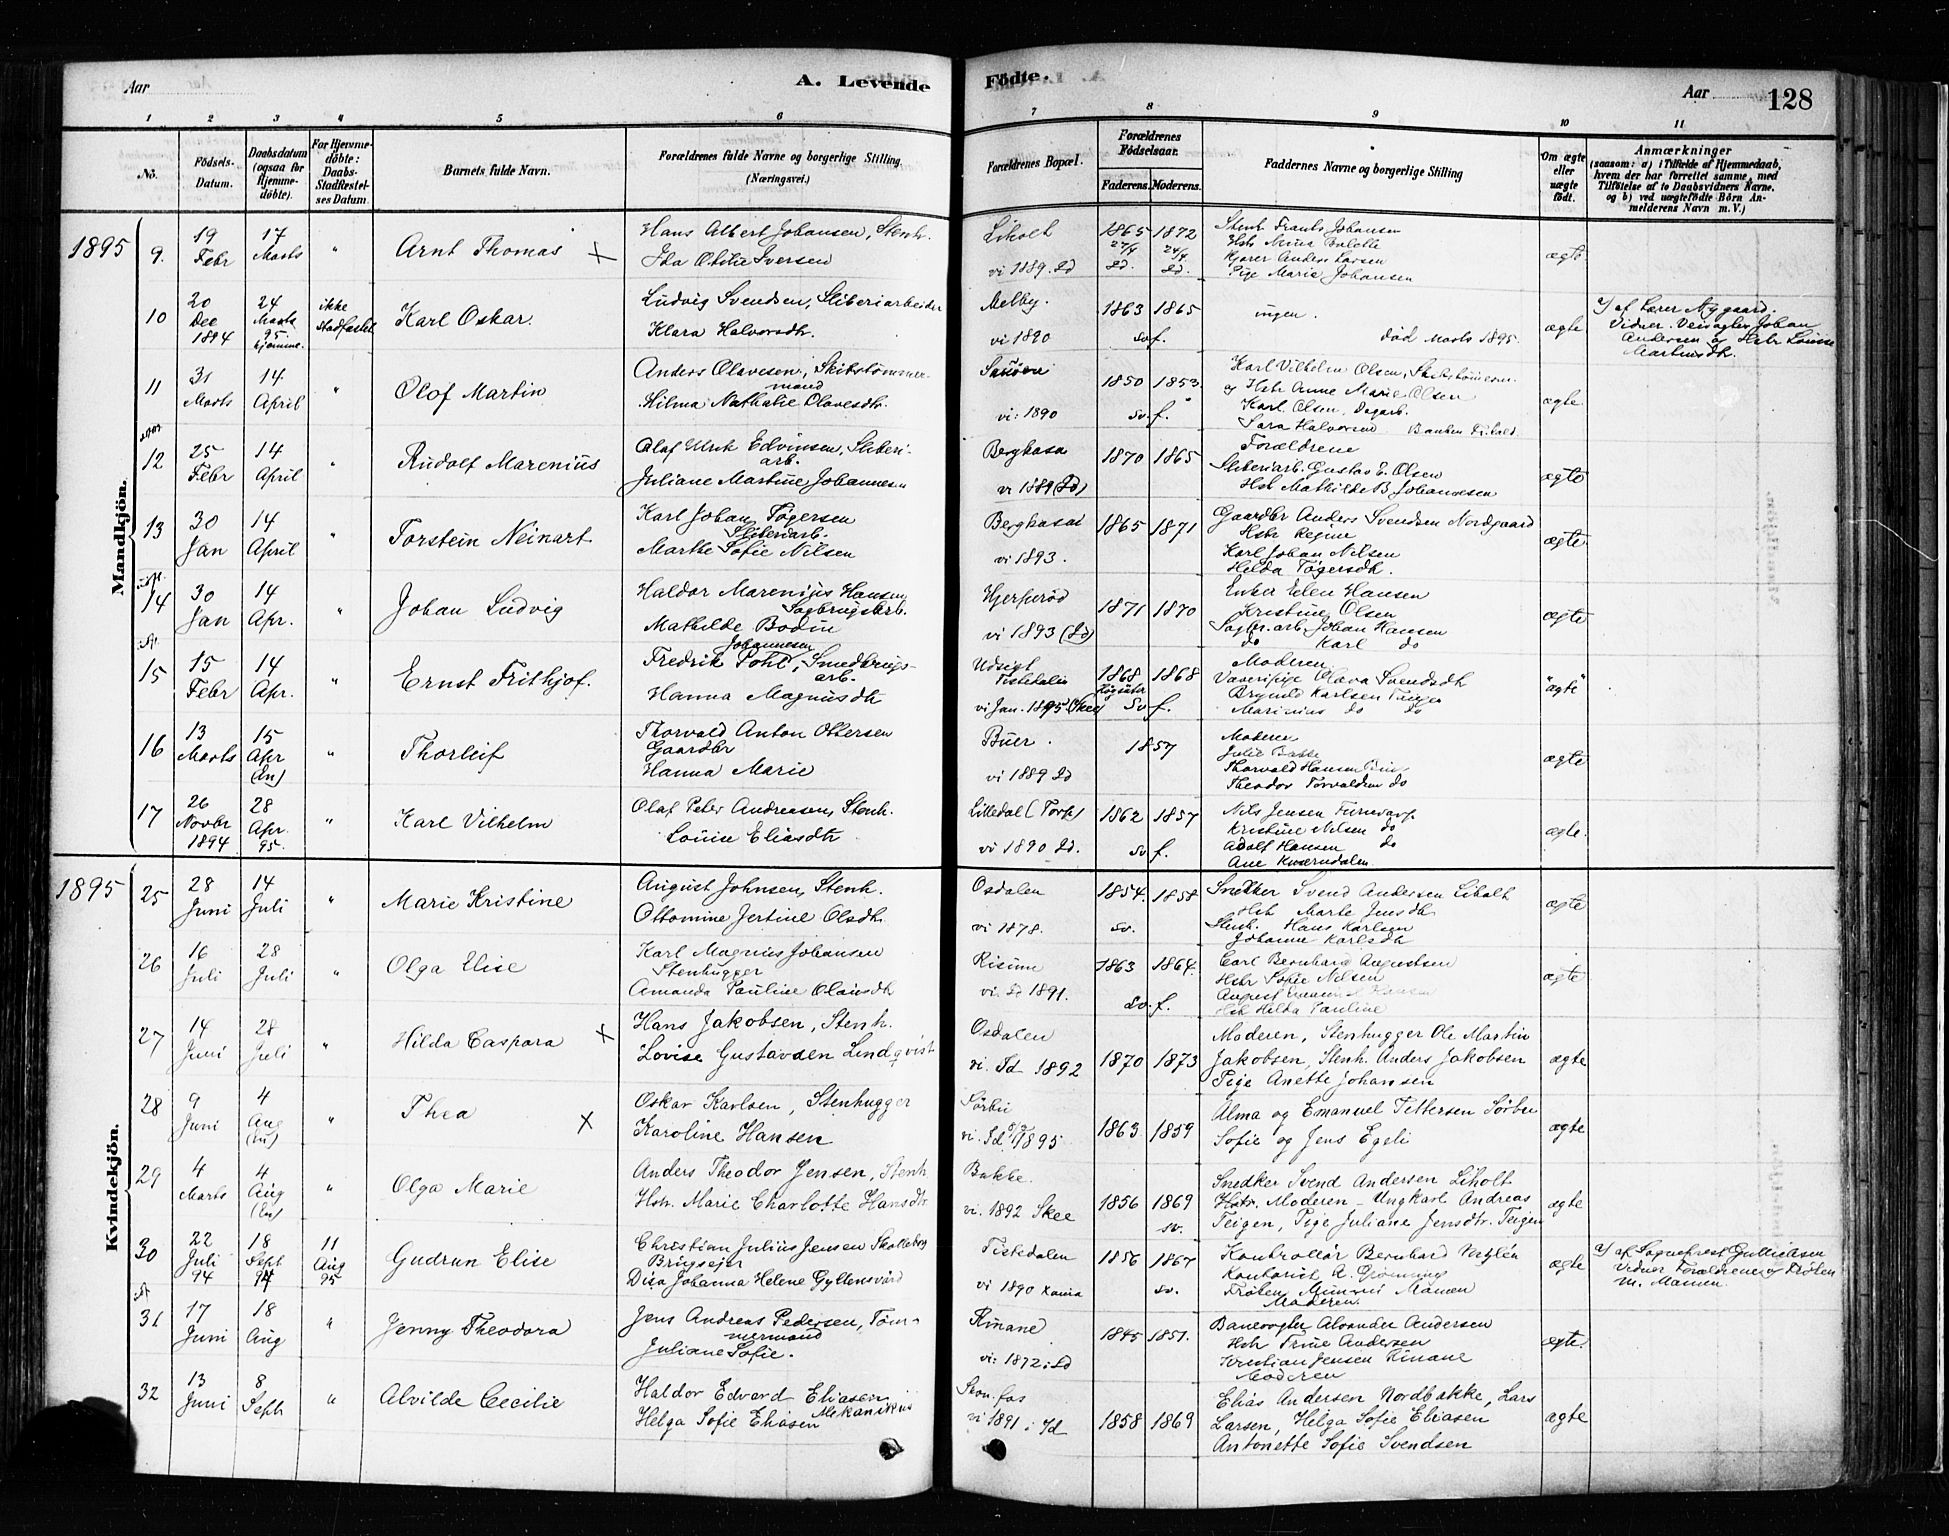 Aar A. Levende Födte. Aar 128
1 2 3 4 5 6 7 8 9 10 11
No.
Födsels-Datum.
Daabsdatum (ogsaa for Hjemme-döbte).
For Hjemme-döbte: Daabs-Stadfæstel-ses Datum.
Barnets fulde Navn.
Forældrenes fulde Navne og borgerlige Stilling (Næringsvei.)
Forældrenes Bopæl.
Forældrenes Födselsaar.
Faderens. Moderens.
Faddernes Navne og borgerlige Stilling
Om ægte eller uægte födt.
Anmærkninger
(saasom: a) i Tilfælde af Hjemmedaab,
hvem der har forrettet samme, med
Tilföielse af to Daabsvidners Navne.
og b) ved uægtefödte Börn An-
melderens Navn m. V.)
Mandkjön.
1895
9. 19 Febr 17 Marts " Arnt Thomas
Hans Albert Johansen, Stenh.
Ida Otilie Iversen
Liholt
vi 1889. Id
1865 1872
27/4 24/4
Id. Id.
Stenh Frants Johansen
Hst Mina
Kjører Anders Larsen
Pige Marie Johansen
ægte
10 20 Dec 1894 24 Marts 95 hjemme. ikke stadfæstet Karl Oskar.
Ludvig Svendsen, Sliberiarbeider
Klara Halvorsdtr.
Melby.
vi 1890
1863 1865
sv f.
ingen.
død Marts 1895.
ægte
a) af Lærer Nygaard.
Vidner. Johan
Andersen og Hstr Louise
11 31 Marts 14. April " Olof Martin
Anders Olavesen, Skibstømmer
mand
Hilma Nathalie Olavesdtr.
vi: 1890
1850 1853.
sv. f.
Karl Vilhelm Olsen, Skibstømerm.
og Hstr Anne Marie Olsen
Karl Olsen, Dagarb.
Sara Halvorsen
ægte.
12 25 Febr 14 April " Rudolf Marenius
Olaf Ulrik Edvinsen, Sliberi-
arb.
Juliane Martine Johannesen
Berghasa
vi 1889 (Id)
1870 1865
Forældrene
Sliberiarb. Gustav E. Olsen
Hst Mathilde B Johannesen
ægte
13 30 Jan 14 April " Torstein Neinart
Karl Johan Tøgersen
Sliberiarb.
Marthe Sofie Nilsen
Berghasa
vi 1893.
1865 1871
Gaardbr Anders Svendsen Nordgaard
Hstr Regine
Karl Johan Nilsen
Hilda Tøgersdtr.
ægte.
14 30 Jan 14 Apr. " Johan Ludvig
Haldor Marenius Hansen
Sagbrugsarb.
Mathilde Bodin
Hjerperød
vi 1893 (Id)
1871 1870
Enke Elen Hansen
Kristine Olsen
Sagbr. arb. Johan Hansen
do Karl do
ægte
15 15 Febr 14 Apr. " Ernst Frithjof.
Johannesen
Fredrik Pohl, Smedbrugs-
arb.
Hanna Magnusdtr
Udsigt
Tistedalen
vi Jan. 1895 (Skee)
1868 1868
sv f.
Moderen
Væveripige Olava Svendsdtr
Brynild Karlsen
Marinius do do
"ægte"
16 13 Marts 15 Apr (En) " Thorleif
Thorvald Anton Ottersen
Gaardbr
Hanna Marie
Buer.
vi 1889 Id
1857
Moderen
Julie
Thorvald Hansen
Theodor Torvaldsen do
ægte
17 26 Novbr 1894 28 Apr. 95. " Karl Vilhelm
Olaf Peter Andreasen, Stenh.
Louise Eliasdtr
Lilledal (Torp)
vi 1890 Id.
1862 1857
sv f.
Nils Jensen
Kristine Nilsen do
Adolf Hansen do
Ane Kværndalen
ægte.
Kvindekjön.
1895
25 28 Juni 14 Juli " Marie Kristine
August Johnsen, Stenh.
Ottomine Jertine Olsdtr.
Osdalen
vi 1878.
1854. 1858
sv.
Snekker Svend Andersen Liholt
Hstr Marte Jensdtr
Stenh. Hans Karlsen
Johanne Karlsdtr
ægte
26 16 Juli 28 Juli " Olga Elise
Karl Magnus Johansen
Stenhugger
Amanda Pauline Olausdtr
Risum
vi. Id 1891.
1863 1864.
sv. f.
Carl Bernhard Augustsen
Hstr Sofie Nilsen
August Emanuel
Hstr Hilda Pauline
ægte
27 14 Juni 28 Juli " Hilda Caspara
Hans Jakobsen, Stenh.
Lovise Gustavsen Lindqvist
Osdalen
vi. Id 1892
1870 1873
Moderen, Stenhugger Ole Martin
Jakobsen, Stenh. Anders Jakobsen
Pige Anette Johansen
ægte
28 9 Juni 4 Aug (En) " Thea
Oskar Karlsen, Stenhugger
Karoline Hansen
Sørbu
vi. Id 1895
1863 1859
Alma og Emanuel Pettersen Sørbu
Sofie og Jens Egeli
ægte
29 4 Marts 4 Aug (En) " Olga Marie
Anders Theodor Jensen, Stenh
Hstr. Marie Charlotte Hansdtr
Bakke.
vi. 1892 Skee
1856 1869
sv.
Snedker Svend Andersen Liholt
Hstr. Moderen - Ungkarl Andreas
Teigen, Pige Juliane Jensdtr. Teigen
ægte
30 22 Juli 94 18 Sept 94 11 Aug 95 Gudrun Elise
Christian Julius Jensen Skolleborg
Brugseier
Disa Johanna Helene Gyllensvärd
Tistedalen
vi 1890 Xania
1856 1867
sv.
Kontrollør Bernhard
Kontorist A. Grønning
Frøken Mimmi Mamen
Moderen.
ægte
a) af Sogneprest Gulliksen
Vidner Forældrene og Frøken
M. Mamen.
31 17 Juni 18 Aug " Jenny Theodora
Jens Andreas Pedersen, Tøm-
mermand
Juliane Sofie.
Knane
vi: 1872: Id
1845 1851.
Banevogter Alexander Andersen
Hstr Trine Andersen
Kristian Jensen Knane
Moderen
ægte.
32 13 Juni 8 Septb " Alvilde Cecilie
Haldor Edvard Eliasen
Mekanikus
Helga Sofie Eliasen
vi 1891 i Id
1858 1869
Elias Andersen Nordbakke, Lars
Larsen, Helga Sofie Eliasen
Antonette Sofie Svendsen
ægte